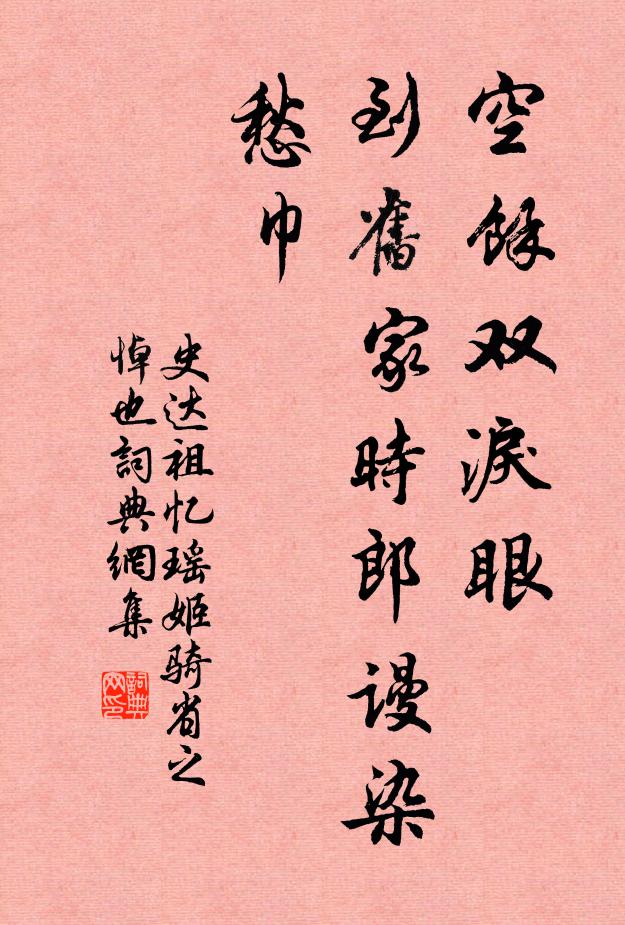 空餘双淚眼
到舊家時郎謾染
愁巾
史达祖忆瑶姬骑省之
悼也詞典網集
詞典
网印